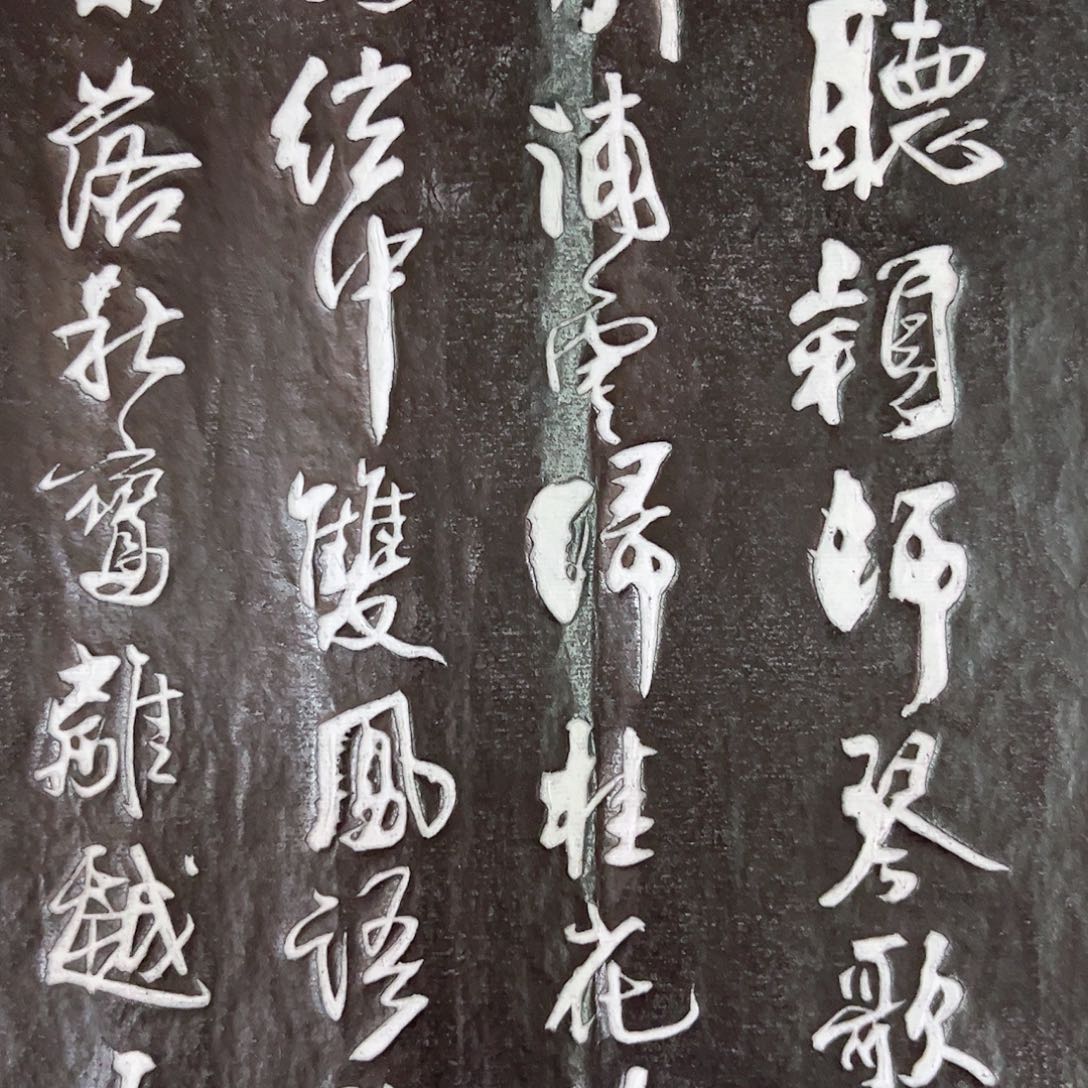 聽穎師琴歌
浦雲歸桂花
絃中雙風語
落秋鸞離越